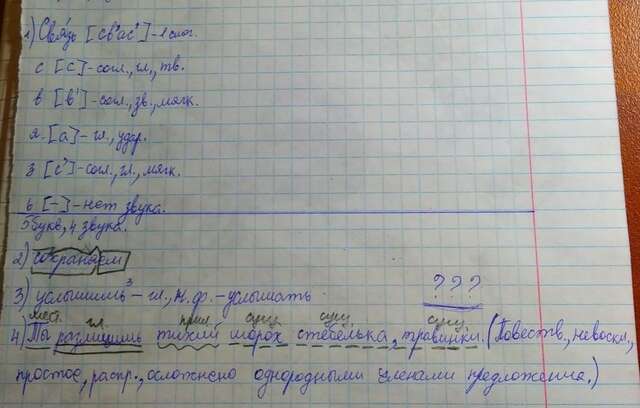 1) Связь [св'ас'] - 1 слог.
с [с] - согл., гл., тв.
в [в'] - согл., зв., мягк.
я [а] - гл., удар.
з [с'] - согл., гл., мягк.
ь [-] - нет звука.
5 букв, 4 звука.
2) сохраняем
3) услышишь³ - гл., н.ф. - услышать
???
мест. гл. прил. сущ. сущ. сущ.
4) Ты различишь тихий шорох стебелька, травинки. (Повеств., невоскл.,
простое, распр., осложнено однородными членами предложения.)